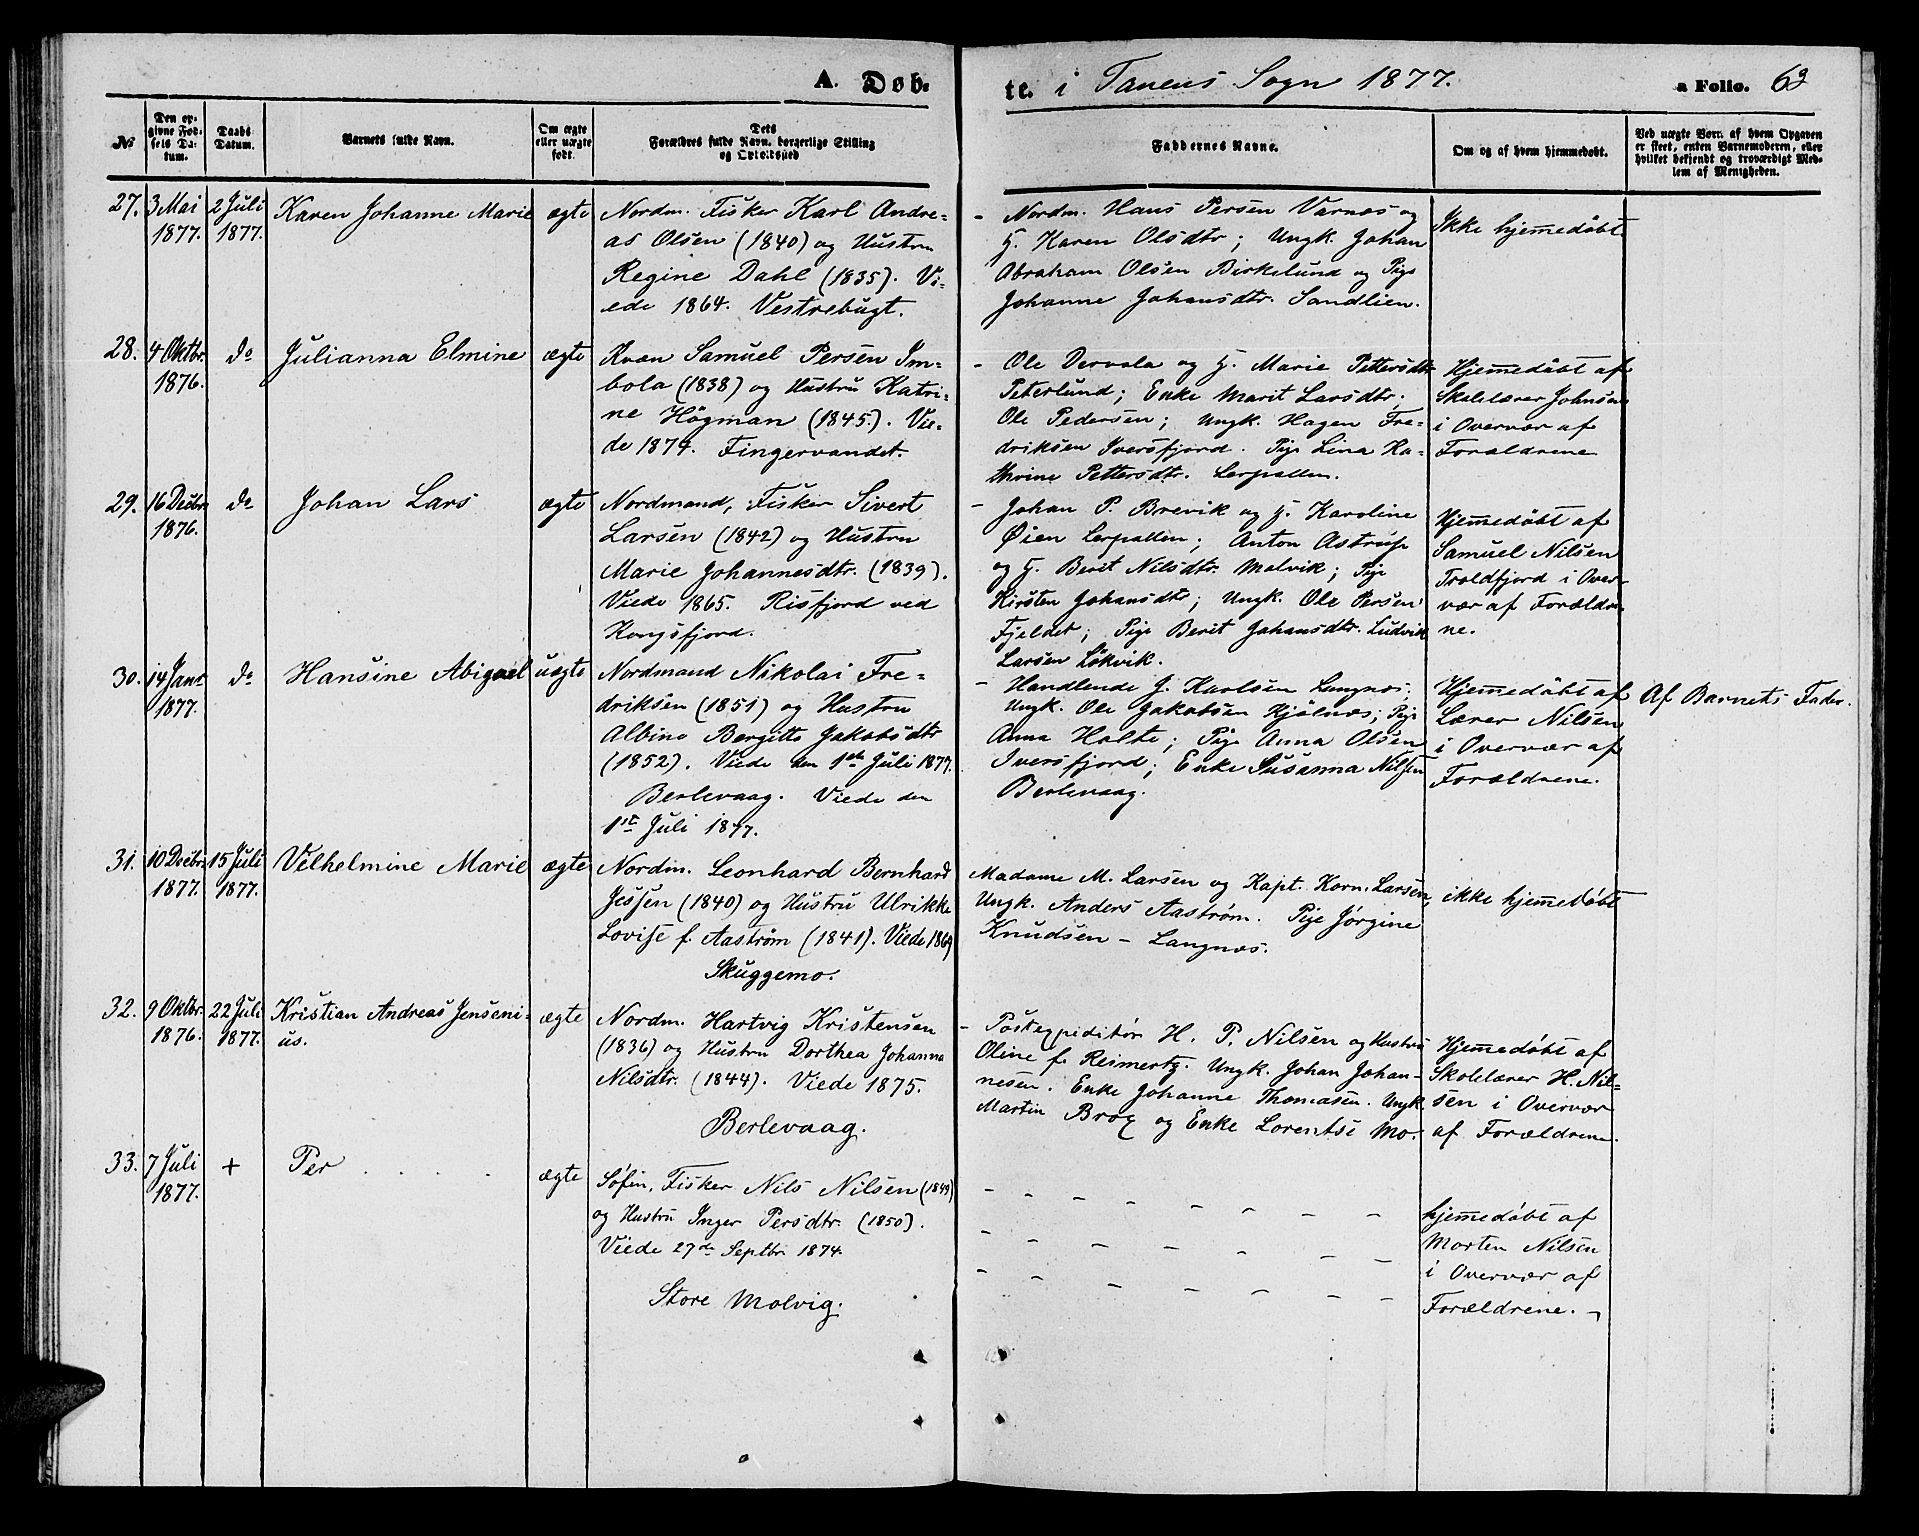 A. Døb-
te. i Tanens Sogn 1877.
a Folio. 63
№
Den opgivne Fødsels Datum.
Daabs Datum.
Barnets fulde Navn.
Om ægte eller uægte født.
Dets Forældres fulde Navn, borgerlige Stilling og Opholdssted
Faddernes Navne.
Om og af hvem hjemmedøbt.
Ved uægte Børn, af hvem Opgaven er skeet, enten Barnemoderen, eller hvilket bekjendt og troværdigt Medlem af Menigheden.
27.
3 Mai
1877.
2 Juli
1877.
Karen Johanne Marie
ægte
Nordm. Fisker Karl Andre-
as Olsen (1840) og Hustru
Regine Dahl (1835). Vi-
ede 1864. Vestrebugt.
- Nordm. Hans Persen Varnæs og
H. Karen Olsdtr; Ungk. Johan
Abraham Olsen Birkelund og Pige
Johanne Johansdtr. Sandlien.
Ikke hjemedøbt
28.
4 Oktbr.
1876.
do
Julianna Elmine
ægte
Kvæn Samuel Persen Im-
bola (1838) og Hustru Katri-
ne Högman (1845). Vie-
de 1874. Fingervandet.
- Ole Dervola og H. Marie Pettersdtr
Peterlund; Enke Marit Larsdtr;
Ole Pedersen; Ungk. Hagen Fre-
driksen Iversfjord. Pige Lina Ka-
thrine Pettersdtr. Lerpollen.
Hjemedøbt af
Skolelærer Johnsen
i Overvær af
Forældrene
29.
16 Decbr
1876.
do
Johan Lars
ægte
Nordmand, Fisker Sivert
Larsen (1842) og Hustru
Marie Johannesdtr. (1839).
Viede 1865. Risfjord ved
Kongsfjord.
- Johan P. Brevik og H. Karoline
Øien Lerpollen; Anton Astrup
og H. Beret Nilsdtr. Molvik; Pige
Kirsten Johansdtr; Ungk. Ole Persen
Fjeldet; Pige Berit Johansdtr. Ludvik
Larsen Løkvik.
Hjemedøbt af
Samuel Nilsen
Troldfjord i Over-
vær af Forældre-
ne.
30.
14 Janr
1877.
do
Hansine Abigael
uægte
Nordmand Nikolai Fre-
driksen (1851) og Hustru
Albine Bergitte Jakobsdtr
(1852). Viede den 1ste Juli 1877.
Berlevaag. Viede den
1st Juli 1877.
- Handlende J. Karlsen Langnæs.
Ungk. Ole Jakobsen Kjølnæs; Pige
Anna Holte; Pige Anna Olsen
Iversfjord; Enke Susanna Nilsen
Berlevaag.
Hjemedøbt af
Lærer Nilsen
i Overvær af
Forældrene.
Af Barnets Fader.
31.
10 Decbr
1877.
15 Juli
1877.
Vilhelmine Marie
ægte
Nordm. Leonhard Bernhard
Jessen (1840) og Hustru Ulrikke
Lovise f. Aastrøm (1841). Viede 1869
Skuggemo.
Madame M. Larsen og Kapt. Korn. Larsen,
Ungk. Anders Aastrøm. Pige Jørgine
Knudsen - Langnæs.
ikke hjemedøbt
32.
9 Oktbr.
1876.
22 Juli
1877.
Kristian Andreas Jenseni-
us.
ægte
Nordm. Hartvig Kristensen
(1836) og Hustru Dorthea Johanna
Nilsdtr. (1844). Viede 1875.
Berlevaag.
- Postexpeditør H. P. Nilsen og Hustru
Oline f. Reimertz. Ungk. Johan Johan-
nesen. Enke Johanne Thomasen. Ungk.
Martin Brox og Enke Lorentse Mo.
Hjemedøbt af
Skolelærer H. Nil-
sen i Overvær
af Forældrene.
33.
7 Juli
1877.
+
Per
ægte
Søfin, Fisker Nils Nilsen (1849)
og Hustru Inger Persdtr. (1850).
Viede 27de Septbr 1874.
Store Molvig.
hjemedøbt af
Morten Nilsen
i Overvær af
Forældrene.